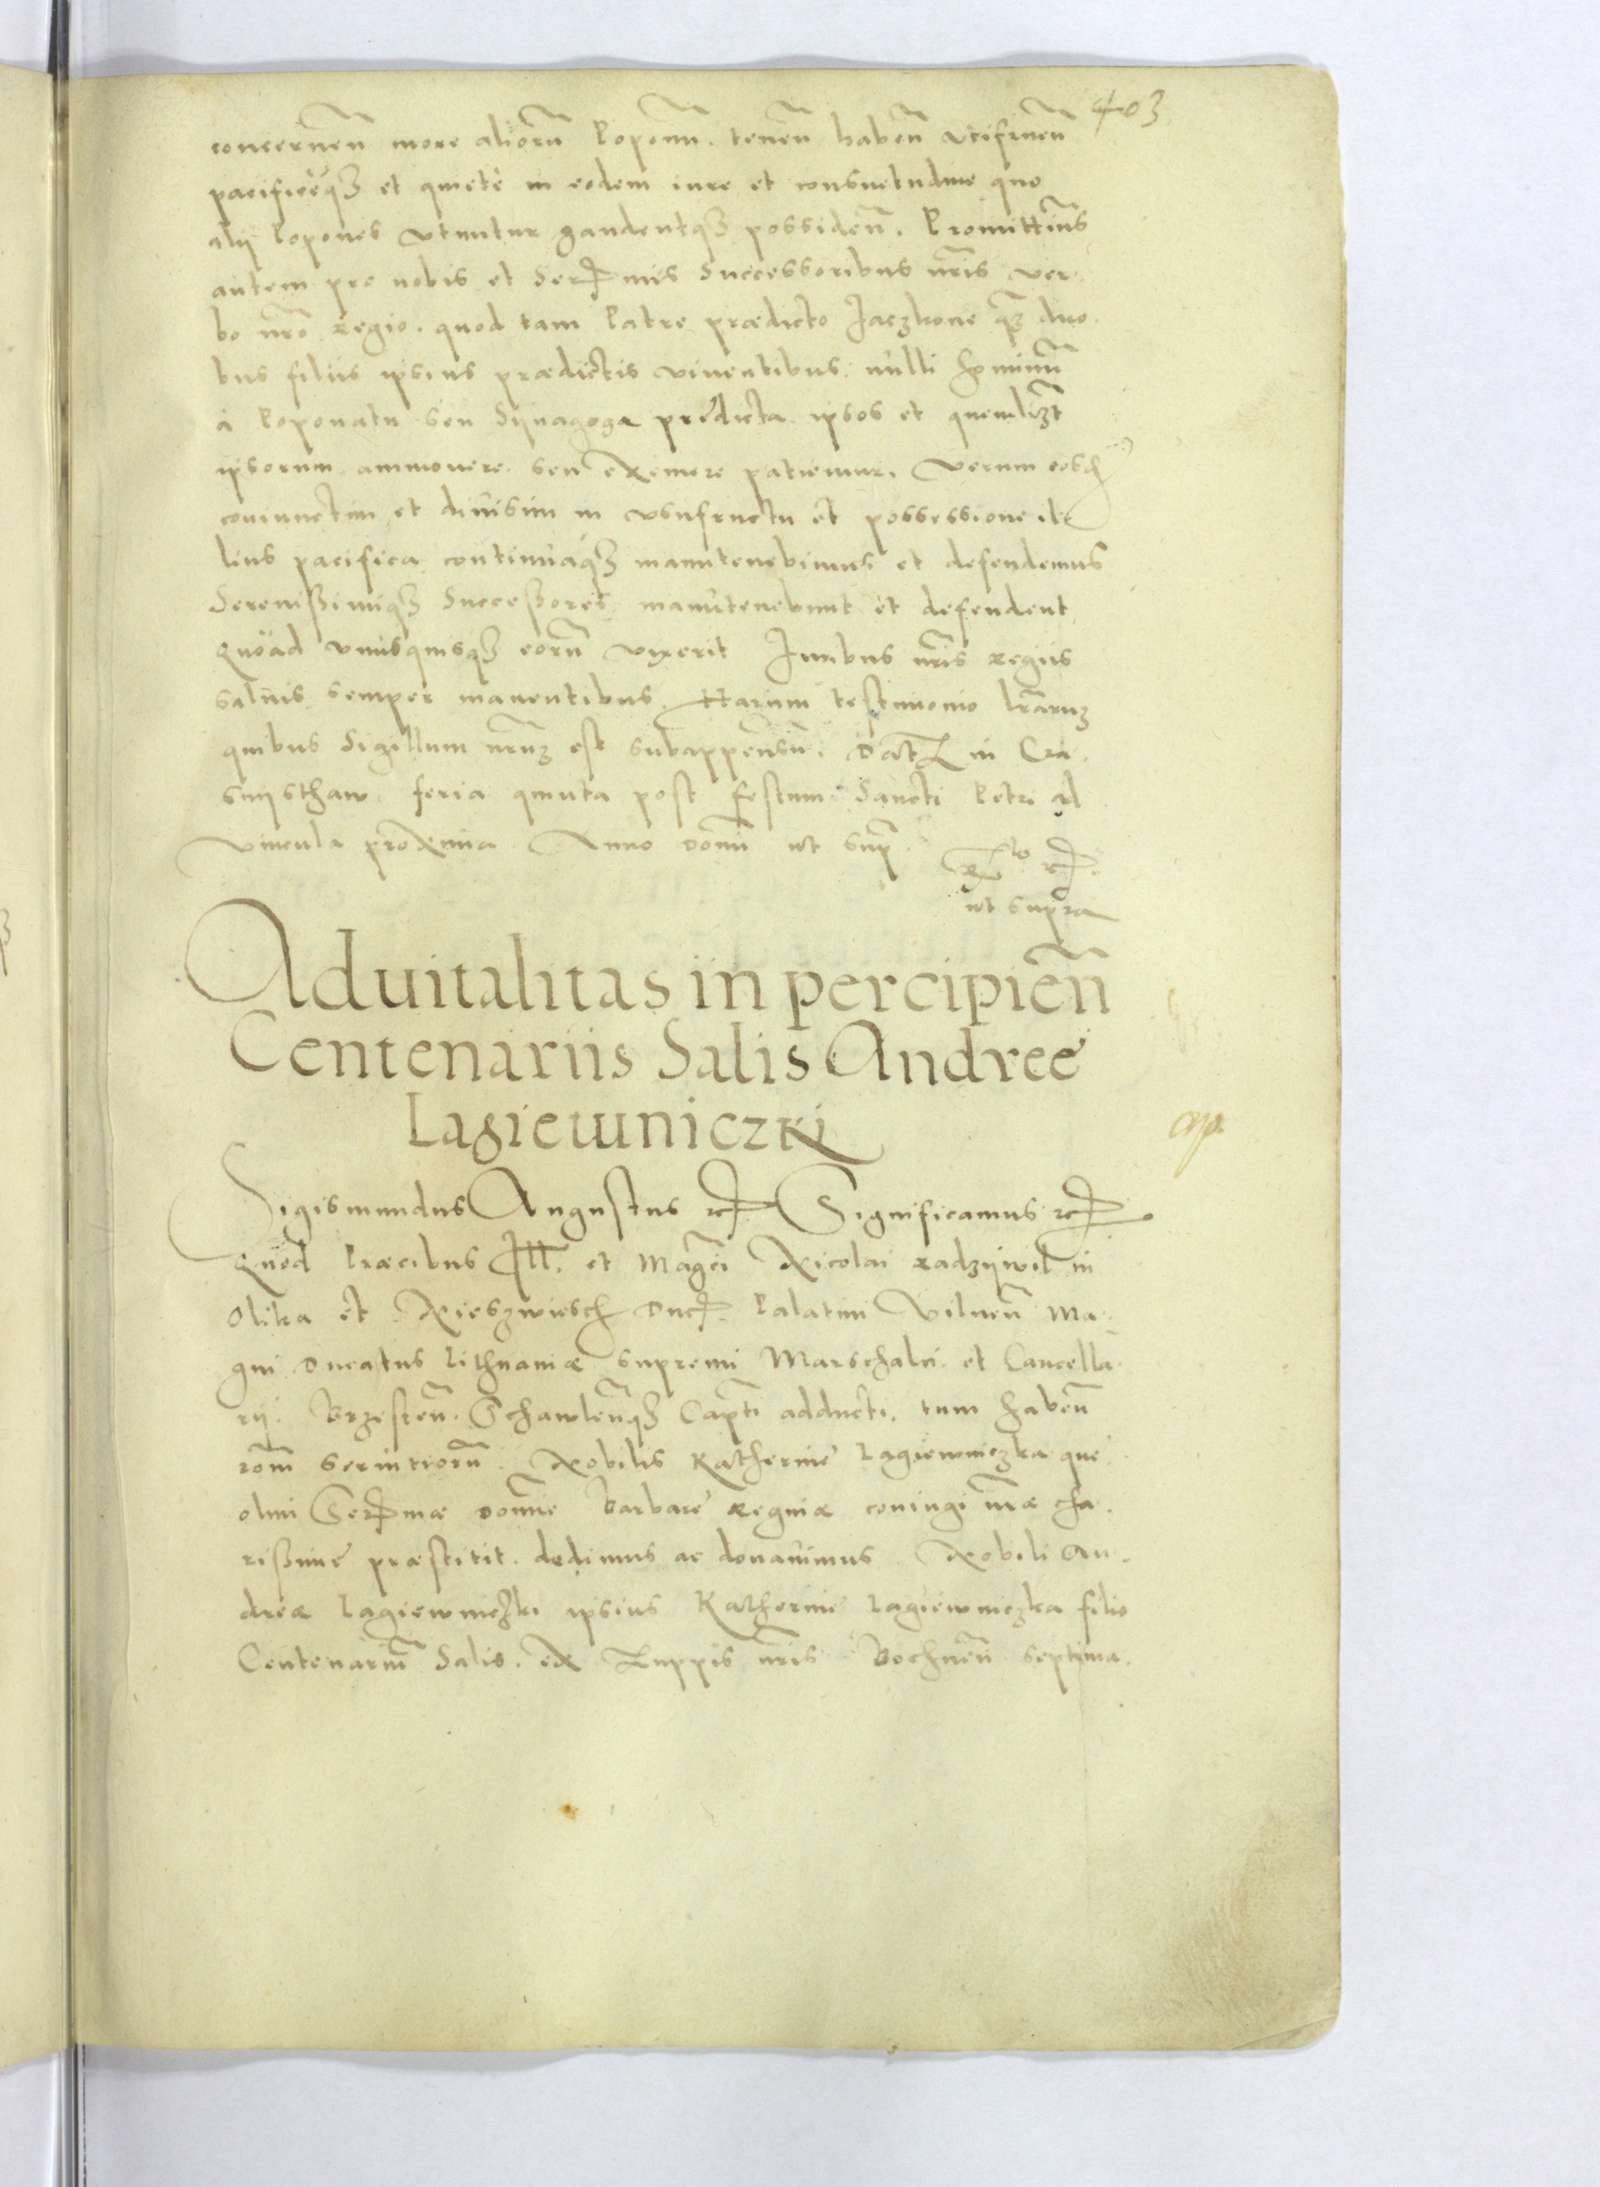 403
concernen̄ more aliorū Poponū. tenen̄ haben̄ vtifruen̄
pacificeq3 et quietè in eodem iure et consuetudine quo
alij Popones vtuntur gaudentq3 possiden̄. Promittim̄s
autem pro nobis et Ser mis Successoribus nr̄is ver
bo nr̄o regio. quod tam Patre prædicto Jaczkone q3 duo
bus filiis ipsius prædictis viventibus nulli hominū
à Poponatu seu Sijnagoga prędicta ipsos et quemlib3t
ipsorum ammouere seu eximere patiemur. Verum eosd
coniunctim et diuisim in vsufructu et possessione il
lius pacifica continuaq3 manutenebimus et defendemus
Serenißimiq3 Successores manutenebunt et defendent
Quoad vnusquisq3 eorū vixerit Juribus nr̄is regiis
saluis semper manentibus. Harum testimonio lr̄aru3
quibus Sigillum nr̄u3 est subappensū. Dat in Cra
snijsthaw feria quinta post festum Sancti Petri ad
vincula proxima Anno Domī ut sup
Rlō etc.
ut supra
Aduitalitas in percipien̄
Centenariis Salis Andreę
Lagiewniczki
Sigismundus Augustus etc Significamus etc
Quod Præcibus Ill. et Mag̃ci Nicolai Radzijwil in
Olika et Nieszwiesch Duc. Palatini Vilnen̄ Ma
gni Ducatus Lithuaniæ supremi Marschalci et Cancella
rij. Brzesten̄. Schawlen̄q3 Capt̄i adducti. tum haben̄
rōm seruitiorū. Nobilis Katherinę Lagiewniczka quę
olim Ser mæ Domne Barbarę Reginæ coniugi nr̄æ cha
rißimę præstitit. dedimus ac donauimus. Nobili An
dreæ Lagiewniczki ipsius Katherinę Lagiewniczka filio
Centenariū Salis. ex Zuppis nr̄is Bochnen̄ septima